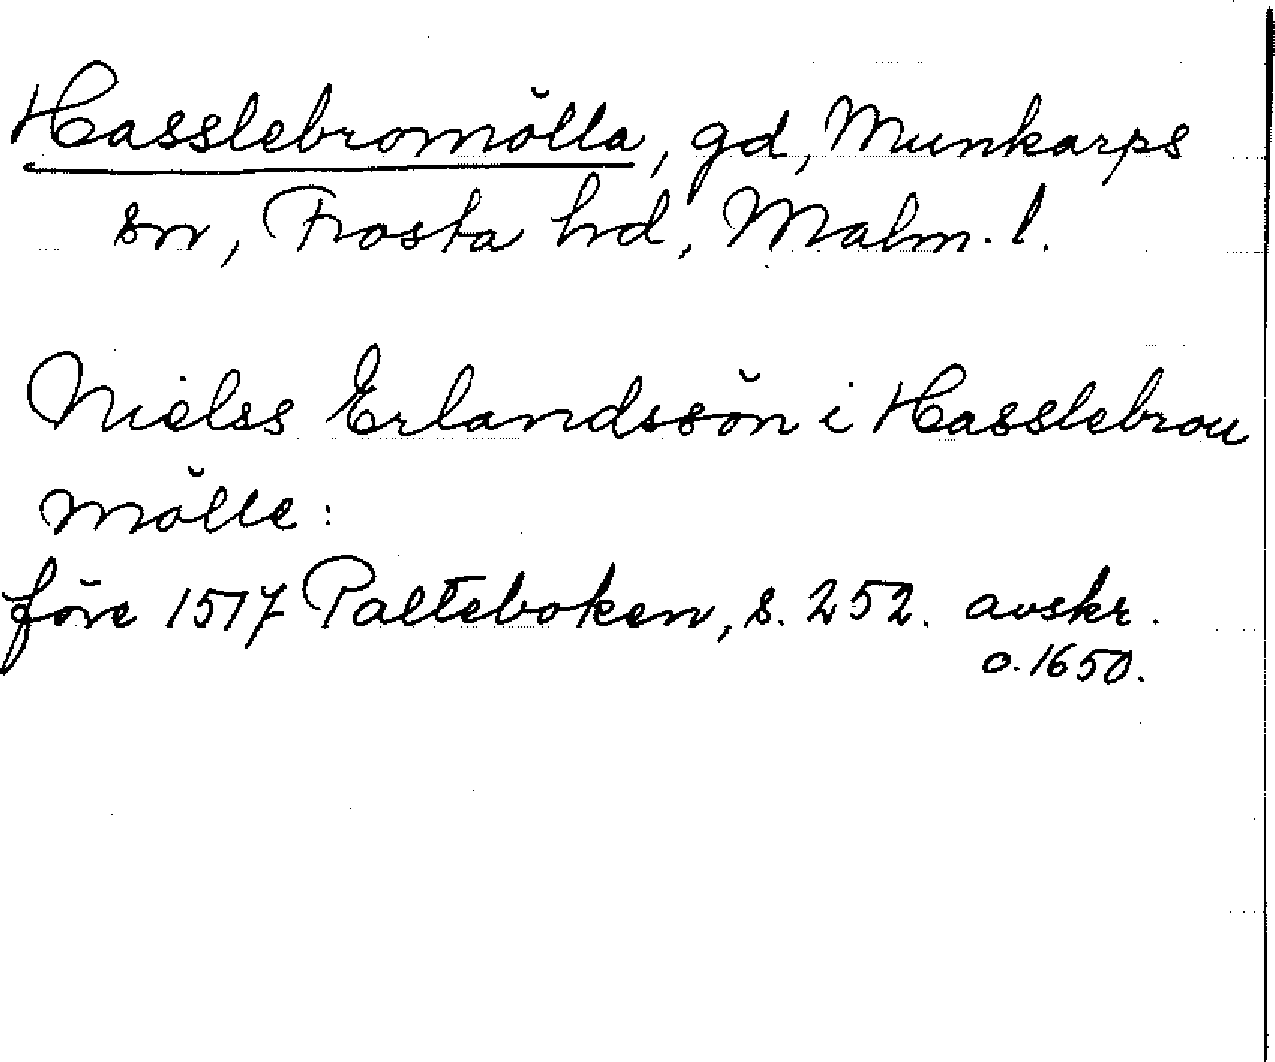 Hasslebromölla, gd, Munkarps
sn, Frosta hd, Malm. l.
Nielss Erlandssön i Hasslebrou
mölle:
före 1517 Palteboken, s. 252. avskr.
o. 1650.